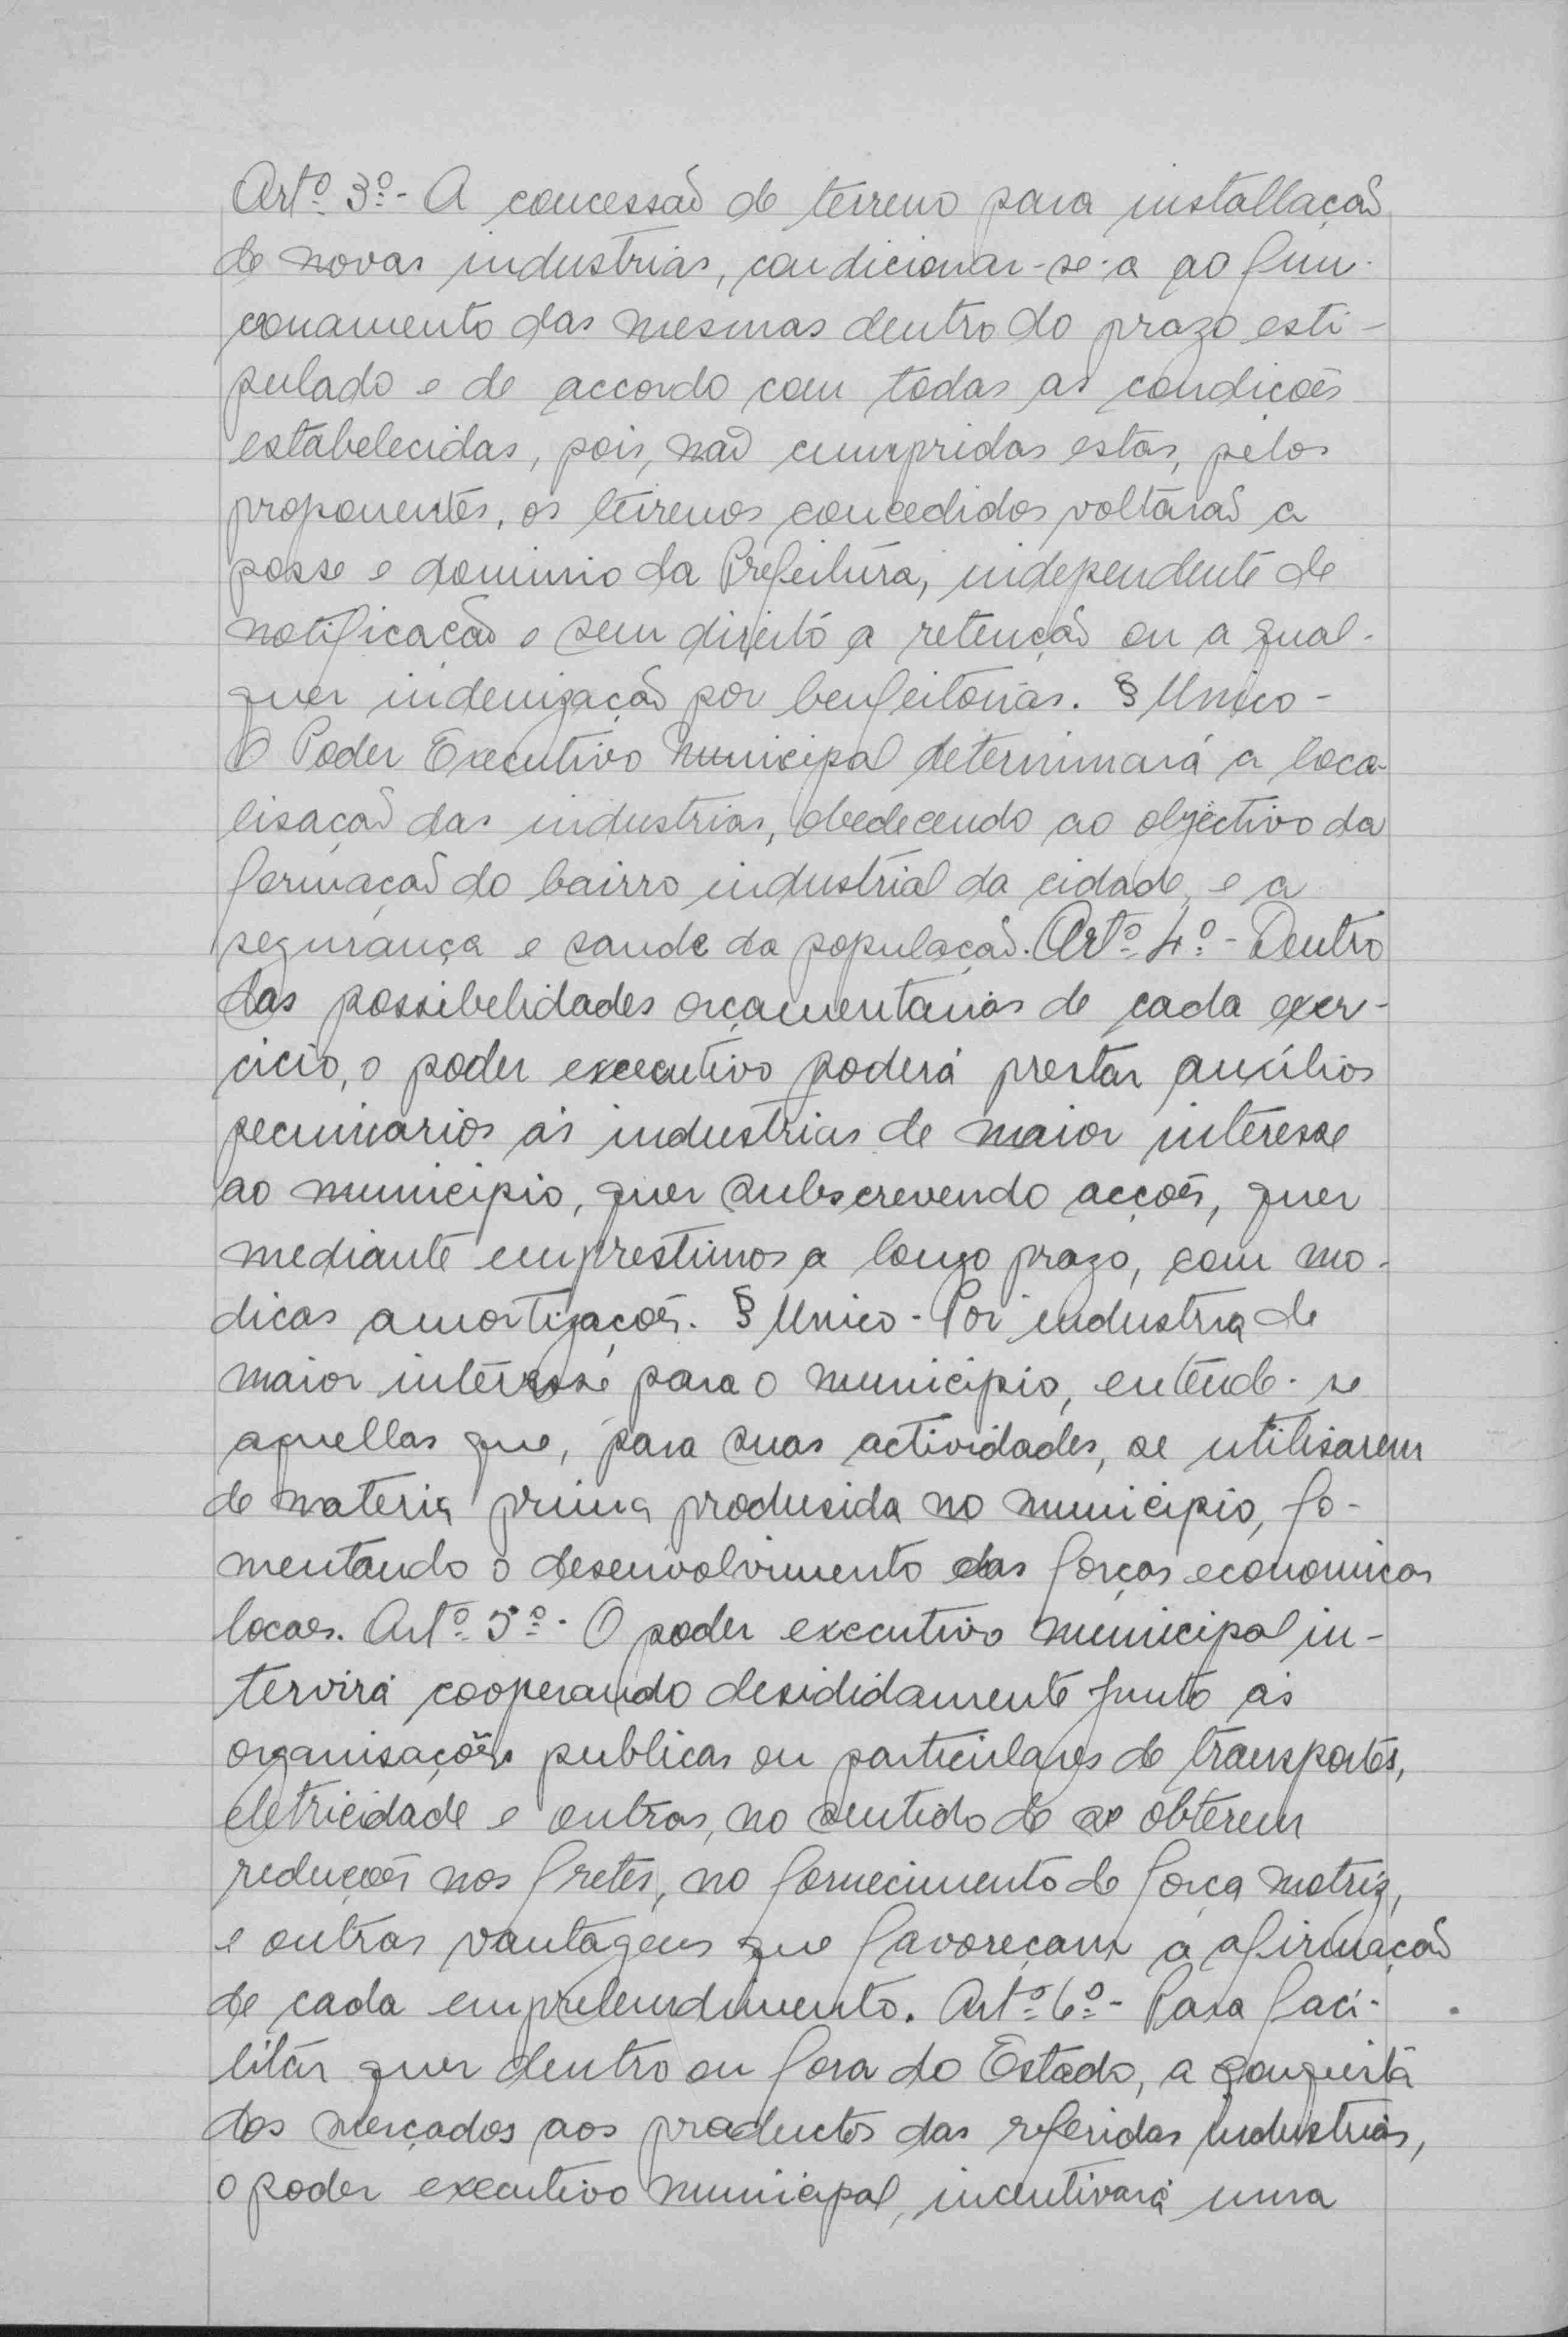 Artº 3º - A concessão de terreno para installação
de novas industrias, condicionar-se-a ao fun-
cionamento das mesmas dentro do prazo esti-
pulado e de accordo com todas as condicões
estabelecidas, pois, não cumpridas estas, pelos
proponentes, os terrenos concedidos voltarão a
posse e dominio da Prefeitura, independente de
notificacão e sem direito a retenção ou a qual-
quer indenização por benfeitorias. § Unico -
O Poder Executivo Municipal determinará a loca-
lisação das industrias, obedecendo ao objectivo da
formação do bairro industrial da cidade, e a
segurança e saude da população. Artº 4º - Dentro
das possibelidades orçamentarias de cada exer-
cicio, o poder executivo poderá prestar auxílios
pecuniarios ás industrias de maior interesse
ao municipio, quer subscrevendo acções, quer
mediante emprestimos a longo prazo, com mo-
dicas amortizações. § Unico - Por industria de
maior interesse para o municipio, entende-se
aquellas que, para suas actividades, se utilisarem
de materia prima produsida no municipio, fo-
mentando o desenvolvimento das forças economicas
locaes. Artº 5º - O poder executivo municipal in-
tervirá cooperando desididamente junto ás
organisações publicas ou particulares de transportes,
eletricidade e outras, no sentido de se obterem
reduções nos fretes, no fornecimento de força motriz,
e outras vantagens que favoreçam a afirmação
de cada empreendimento. Artº 6º - Para faci-
litar quer dentro ou fora do Estado, a conquista
dos mercados aos productos das referidas industrias,
o poder executivo municipal, incentivará uma